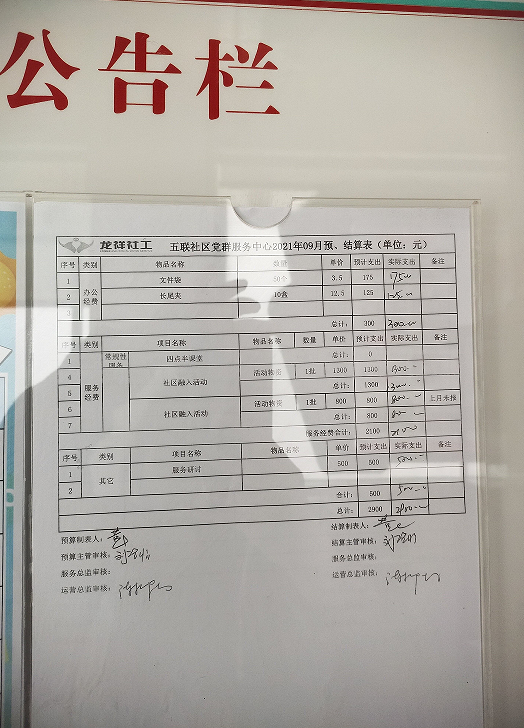 公告栏
龙祥社工 五联社区党群服务中心2021年09月预、结算表（单位：元）
序号 类别 物品名称 数量 单价 预计支出 实际支出 备注
1 办公经费 文件袋 50个 3.5 175 175.00
2 长尾夹 10盒 12.5 125 125.00
3
总计： 300 300.00
序号 类别 项目名称 物品名称 数量 单价 预计支出 实际支出 备注
1 服务经费 常规性服务 四点半课堂 总计： 0
4 社区融入活动 活动物资 1批 1300 1300 1300.00
5 总计： 1300 1300.00
6 社区融入活动 活动物资 1批 800 800 800.00 上月未报
7 总计： 800
服务经费合计： 2100 2100
序号 类别 项目名称 物品名称 单价 预计支出 实际支出 备注
1 其它 服务研讨 500 500 500.00
2
合计： 500 500.00
总计： 2900 2900.00
预算制表人： 结算制表人：
预算主管审核： 结算主管审核：
服务总监审核： 服务总监审核：
运营总监审核： 运营总监审核：